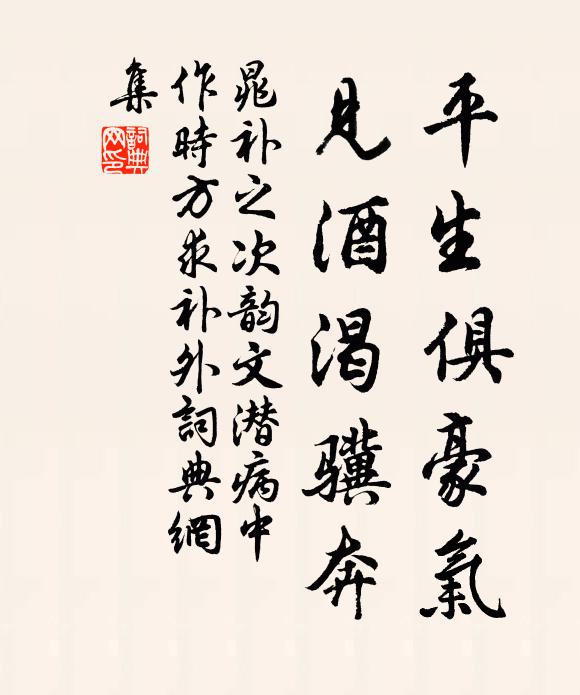 平生俱豪氣
見酒渴骥奔
晁补之次韵文潜病中
作時方求补外詞典網
集
詞典网印